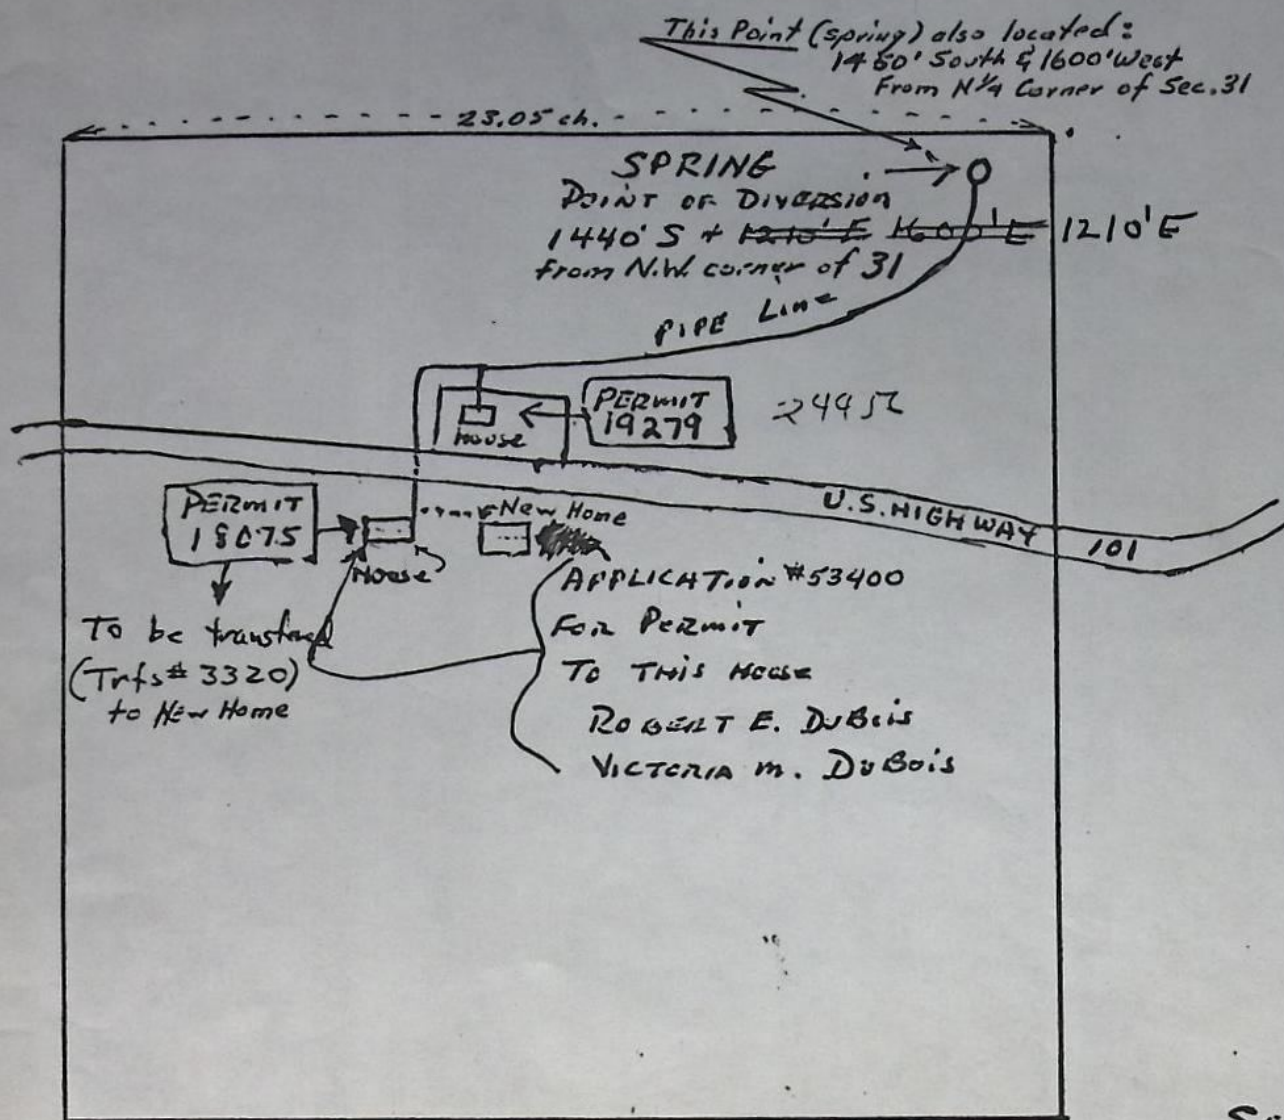 This Point (spring) also located:
1450' South & 1600' West
From N¼ Corner of Sec. 31
23.05 ch.
SPRING
POINT OF DIVERSION
1440' S + 1210' E 1600' E 1210' E
from N.W. corner of 31
PIPE Line
PERMIT
19279
House
U.S. HIGHWAY 101
PERMIT
18075
New Home
House
To be transfered
(Trfs# 3320)
to New Home
APPLICATION #53400
FOR PERMIT
TO THIS HOUSE
ROBERT E. DuBois
VICTORIA M. DuBois